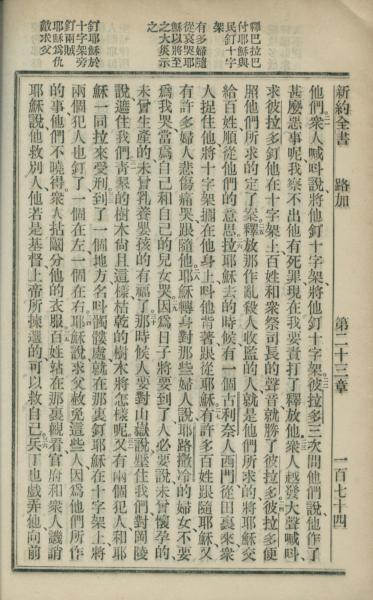 新約全書　路加　第二十三章　一百七十四
釋巴拉巴
付耶穌與
民釘十字
架
有多婦隨
從哀哭耶
穌以將至
之大災示
之
釘耶穌於
十字架旁
釘兩賊
耶穌為仇
敵求父
他們衆人喊呌說將他釘十字架將他釘十字架彼拉多三次問他們說他作了
甚麼惡事呢我察不出他有死罪現在我要責打了釋放他衆人越發大聲喊呌
求彼拉多釘他在十字架上百姓和衆祭司長的聲音就勝了彼拉多彼拉多便
照他們所求的定了案釋放那作亂殺人收監的人就是他們所求的將耶穌交
給百姓順從他們的意思拉耶穌去的時候有一個古利奈人西門從田裏來衆
人捉住他將十字架擱在他身上呌他背著跟從耶穌有許多百姓跟隨耶穌又
有許多婦人悲傷痛哭跟隨他耶穌轉身對那些婦人說耶路撒冷的婦女不要
為我哭當為自己和自己的兒女哭因為日子將要到了人必要說未曾懷孕的
未曾生產的未曾乳養嬰孩的有福了那時候人要對山嶽說壓住我們對岡陵
說遮住我們青綠的樹木尚且這樣枯乾的樹木將怎樣呢又有兩個犯人和耶
穌一同拉來受刑到了一個地方名呌髑髏處就在那裏釘耶穌在十字架上將
兩個犯人也釘了一個在左一個在右耶穌說求父赦免這些人因為他們所作
的事他們不曉得衆人拈鬮分他的衣服百姓站在那裏觀看官府和衆人譏誚
耶穌說他救別人他若是基督上帝所揀選的可以救自己兵丁也戲弄他向前